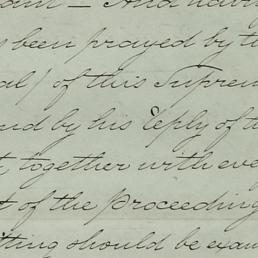 – And
been prayed by
of this Suprem
and by his reply of
together with eve
of the proceeding
should be exa